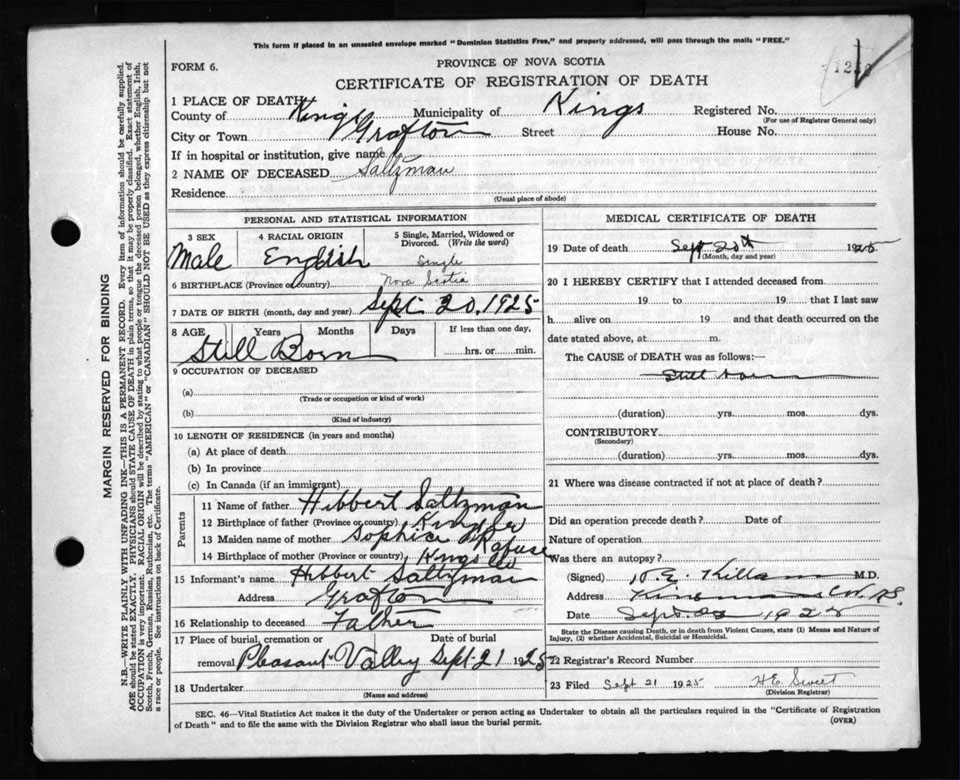 This form if placed in an unsealed envelope marked "Dominion Statistics Free," and properly addressed, will pass through the mails "FREE."
FORM 6.
PROVINCE OF NOVA SCOTIA
CERTIFICATE OF REGISTRATION OF DEATH
1 PLACE OF DEATH
County of Kings Municipality of Kings Registered No.
(For use of Registrar General only)
City or Town Grafton Street House No.
If in hospital or institution, give name
2 NAME OF DECEASED Saltzman
Residence
(Usual place of abode)
PERSONAL AND STATISTICAL INFORMATION
3 SEX 4 RACIAL ORIGIN 5 Single, Married, Widowed or Divorced. (Write the word)
Male English Single
6 BIRTHPLACE (Province or country) Nova Scotia
7 DATE OF BIRTH (month, day and year) Sept 20, 1925
8 AGE Years Months Days If less than one day,
Still Born hrs. or min.
9 OCCUPATION OF DECEASED
(a)
(Trade or occupation or kind of work)
(b)
(Kind of industry)
10 LENGTH OF RESIDENCE (in years and months)
(a) At place of death
(b) In province
(c) In Canada (if an immigrant)
Parents
11 Name of father Hibbert Saltzman
12 Birthplace of father (Province or country) Kings Co
13 Maiden name of mother Sophia
14 Birthplace of mother (Province or country) Kings Co
15 Informant's name Hibbert Saltzman
Address Grafton
16 Relationship to deceased Father
17 Place of burial, cremation or removal Date of burial
Pleasant Valley Sept 21 1925
18 Undertaker
(Name and address)
MEDICAL CERTIFICATE OF DEATH
19 Date of death Sept 20th 1925
(Month, day and year)
20 I HEREBY CERTIFY that I attended deceased from
19 to 19 that I last saw
h alive on 19 and that death occurred on
date stated above, at m.
The CAUSE of DEATH was as follows:—
Still born
(duration) yrs. mos. dys.
CONTRIBUTORY
(Secondary)
(duration) yrs. mos. dys.
21 Where was disease contracted if not at place of death?
Did an operation precede death? Date of
Nature of operation
Was there an autopsy?
(Signed) Killam M.D.
Address
Date Sept. 192
State the Disease causing Death, or in death from Violent Causes, state (1) Means and Nature of
Injury, (2) whether Accidental, Suicidal or Homicidal.
22 Registrar's Record Number
23 Filed Sept 21 1925
(Division Registrar)
SEC. 46—Vital Statistics Act makes it the duty of the Undertaker or person acting as Undertaker to obtain all the particulars required in the "Certificate of Registration
of Death" and to file the same with the Division Registrar who shall issue the burial permit. (OVER)
MARGIN RESERVED FOR BINDING
N.B.—WRITE PLAINLY WITH UNFADING INK—THIS IS A PERMANENT RECORD. Every item of information should be carefully supplied.
AGE should be stated EXACTLY. PHYSICIANS should STATE CAUSE OF DEATH in plain terms, so that it may be properly classified. Exact statement of
OCCUPATION is very important. RACIAL ORIGIN will be described by stating to what people or tongue the deceased person belonged, whether English, Irish,
Scotch, French, German, Russian, Ruthenian, etc. The terms "AMERICAN" or "CANADIAN" SHOULD NOT BE USED as they express citizenship but not
a race or people. See instructions on back of Certificate.